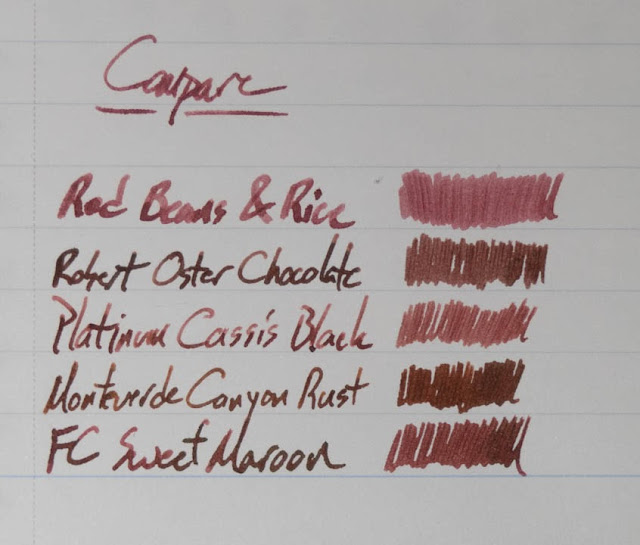 Compare
Red Beans & Rice
Robert Oster Chocolate
Platinum Cassis Black
Monteverde Canyon Rust
FC Sweet Maroon